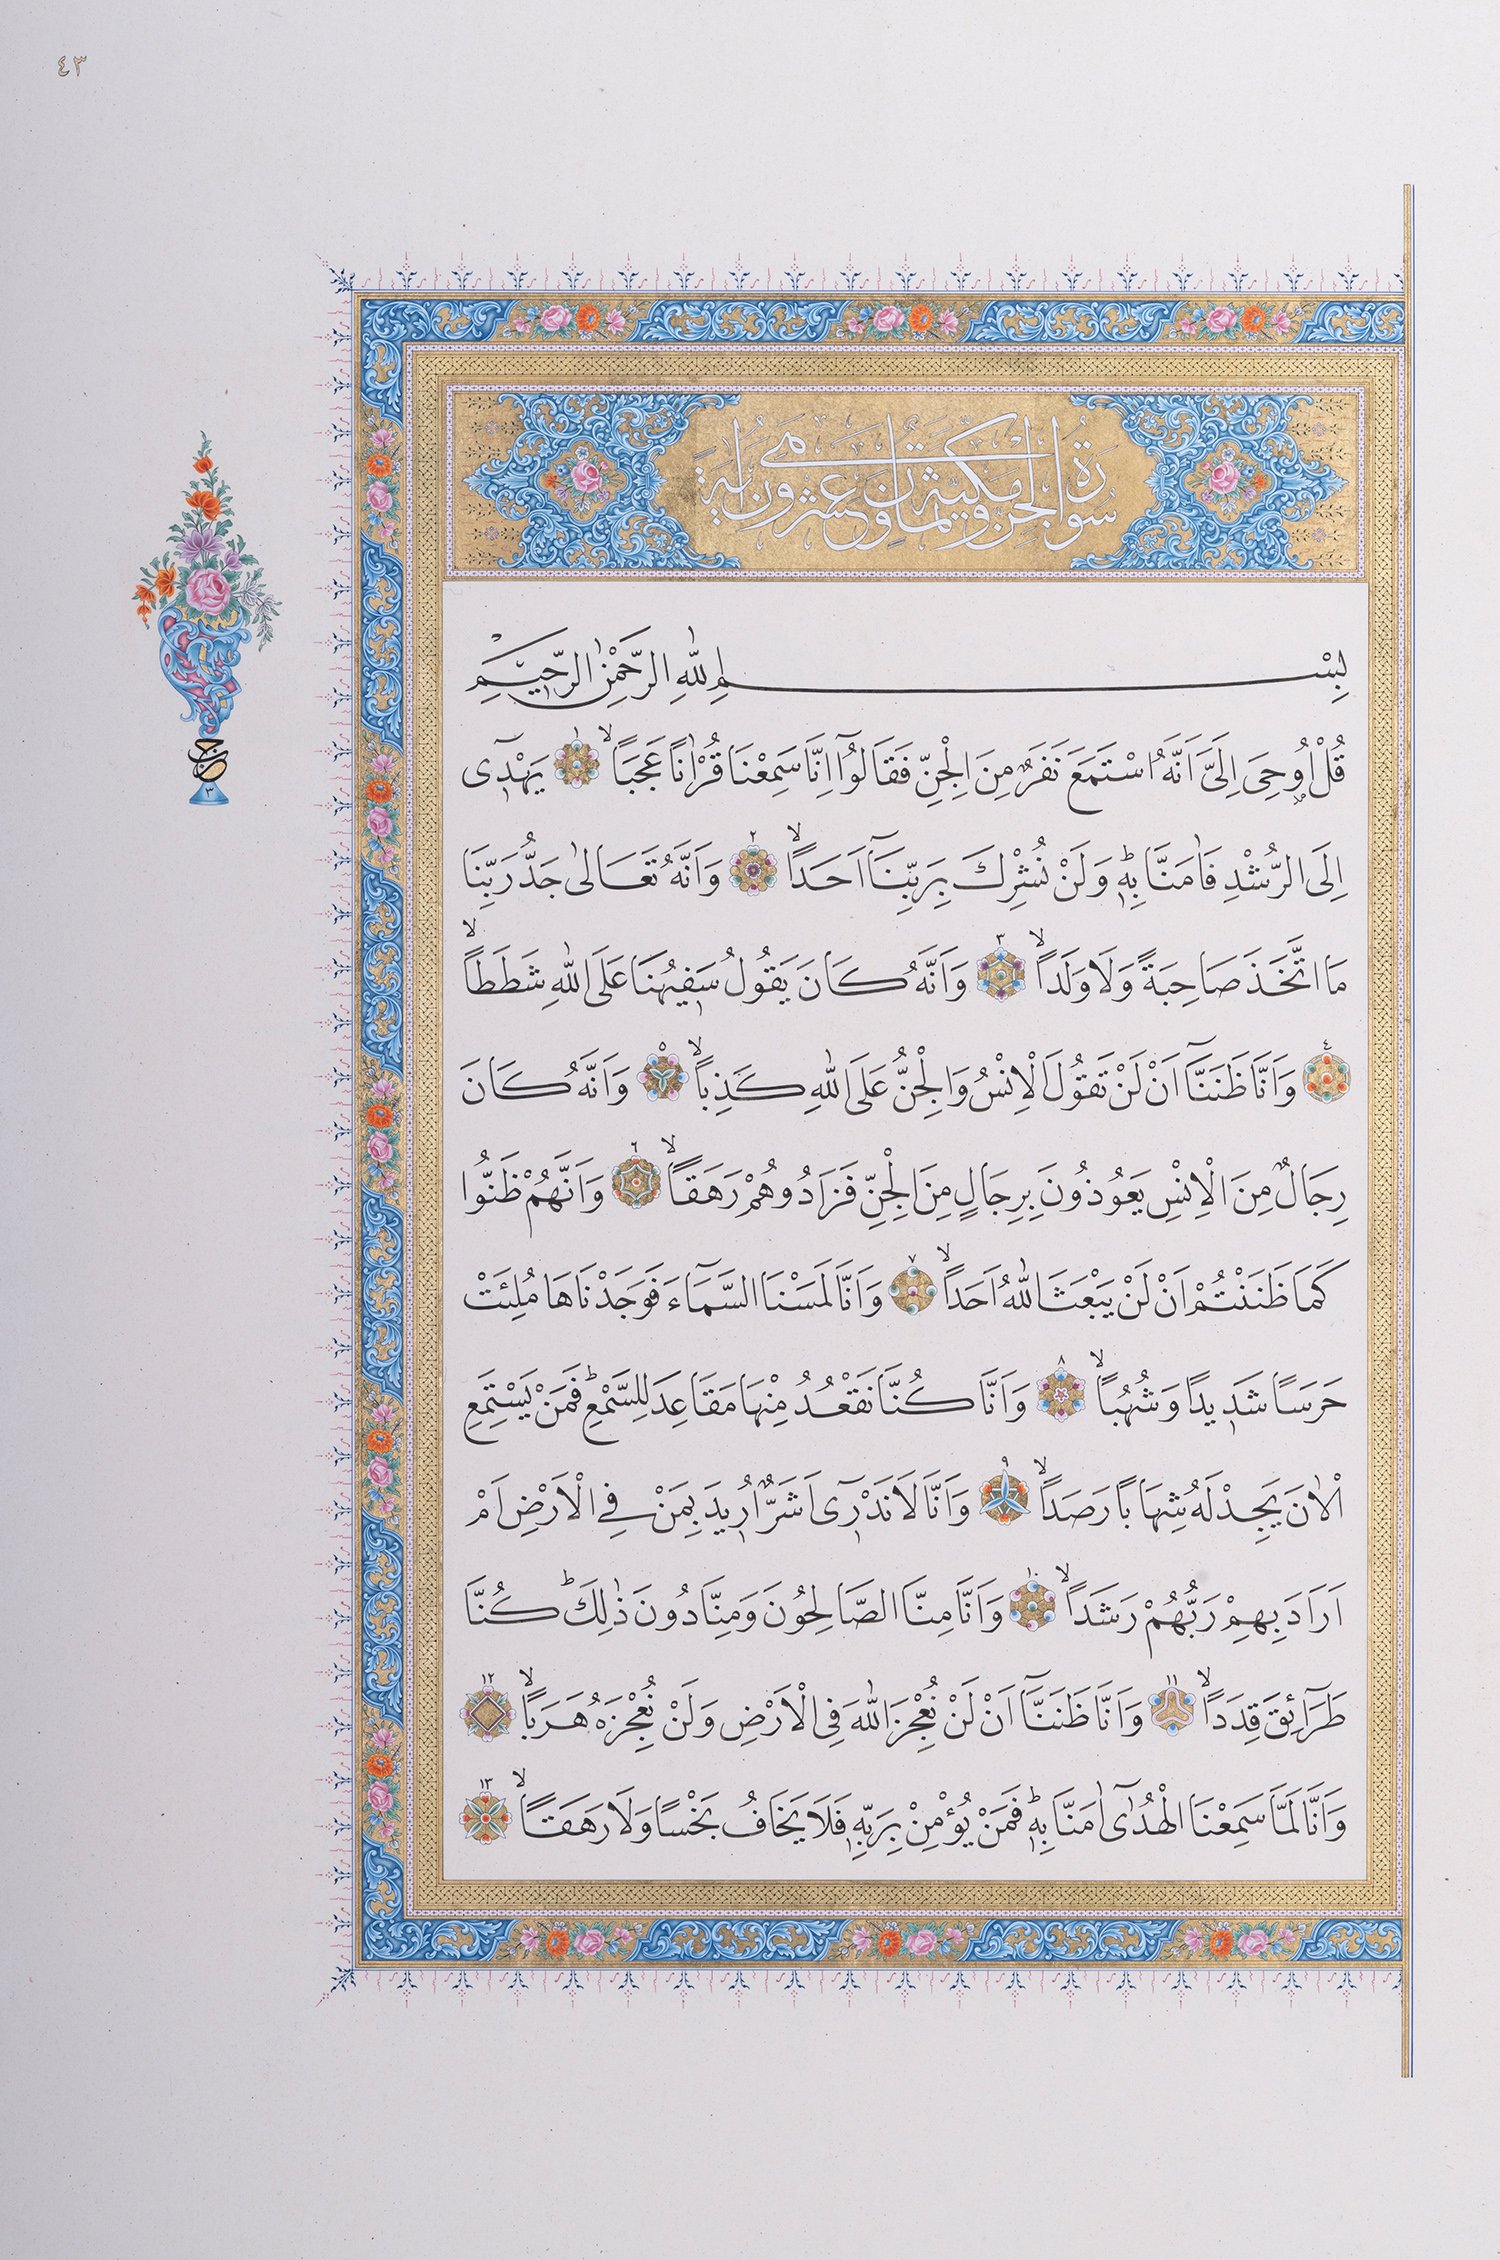 ٤٣
سورة الجن مكية وهي ثمان وعشرون اية
بِسْمِ اللّٰهِ الرَّحْمٰنِ الرَّحِيمِ
قُلْ اُو۫حِيَ اِلَيَّ اَنَّهُ اسْتَمَعَ نَفَرٌ مِنَ الْجِنِّ فَقَالُٓوا اِنَّا سَمِعْنَا قُرْاٰنًا عَجَبًاۙ ١ يَهْد۪ٓي
اِلَى الرُّشْدِ فَاٰمَنَّا بِه۪ۜ وَلَنْ نُشْرِكَ بِرَبِّنَٓا اَحَدًاۙ ٢ وَاَنَّهُ تَعَالٰى جَدُّ رَبِّنَا
مَا اتَّخَذَ صَاحِبَةً وَلَا وَلَدًاۙ ٣ وَاَنَّهُ كَانَ يَقُولُ سَف۪يهُنَا عَلَى اللّٰهِ شَطَطًاۙ
٤ وَاَنَّا ظَنَنَّٓا اَنْ لَنْ تَقُولَ الْاِنْسُ وَالْجِنُّ عَلَى اللّٰهِ كَذِبًاۙ ٥ وَاَنَّهُ كَانَ
رِجَالٌ مِنَ الْاِنْسِ يَعُوذُونَ بِرِجَالٍ مِنَ الْجِنِّ فَزَادُوهُمْ رَهَقًاۙ ٦ وَاَنَّهُمْ ظَنُّوا
كَمَا ظَنَنْتُمْ اَنْ لَنْ يَبْعَثَ اللّٰهُ اَحَدًاۙ ٧ وَاَنَّا لَمَسْنَا السَّمَٓاءَ فَوَجَدْنَاهَا مُلِئَتْ
حَرَسًا شَد۪يدًا وَشُهُبًاۙ ٨ وَاَنَّا كُنَّا نَقْعُدُ مِنْهَا مَقَاعِدَ لِلسَّمْعِۜ فَمَنْ يَسْتَمِعِ
الْاٰنَ يَجِدْ لَهُ شِهَابًا رَصَدًاۙ ٩ وَاَنَّا لَا نَدْر۪ٓي اَشَرٌّ اُر۪يدَ بِمَنْ فِي الْاَرْضِ اَمْ
اَرَادَ بِهِمْ رَبُّهُمْ رَشَدًاۙ ١٠ وَاَنَّا مِنَّا الصَّالِحُونَ وَمِنَّا دُونَ ذٰلِكَۜ كُنَّا
طَرَٓائِقَ قِدَدًاۙ ١١ وَاَنَّا ظَنَنَّٓا اَنْ لَنْ نُعْجِزَ اللّٰهَ فِي الْاَرْضِ وَلَنْ نُعْجِزَهُ هَرَبًاۙ ١٢
وَاَنَّا لَمَّا سَمِعْنَا الْهُدٰٓى اٰمَنَّا بِه۪ۜ فَمَنْ يُؤْمِنْ بِرَبِّه۪ فَلَا يَخَافُ بَخْسًا وَلَا رَهَقًاۙ ١٣
حزب
٣